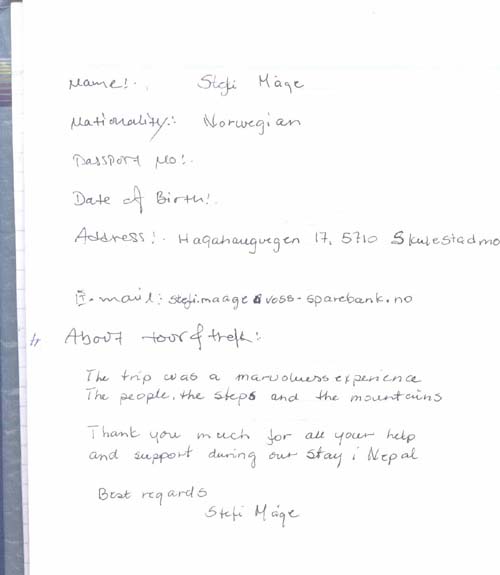 Name:. Stefi Måge
Nationality:. Norwegian
Passport No:.
Date of Birth:.
Address:. Hagahaugvegen 17, 5710 Skulestadmo
E-mail: stefi.maage @ voss-sparebank.no
About tour & trek:
The trip was a marvolwess experience
The people, the steps and the mountains
Thank you much for all your help
and support during our stay i Nepal
Best regards
Stefi Måge